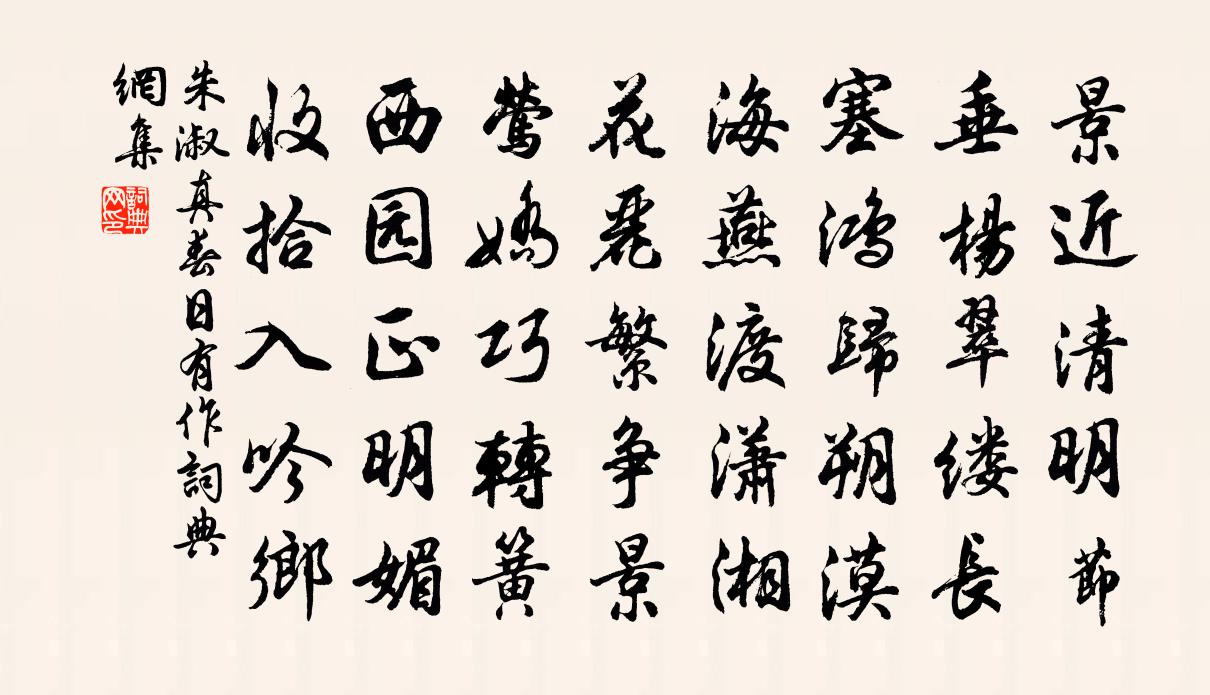 景近清明節
垂楊翠缕長
塞鸿歸朔漠
海燕渡潇湘
花麗繁争景
莺嬌巧轉簧
西园正明媚
收拾入吟鄉
朱淑真春日有作詞典
網集
詞典
网印